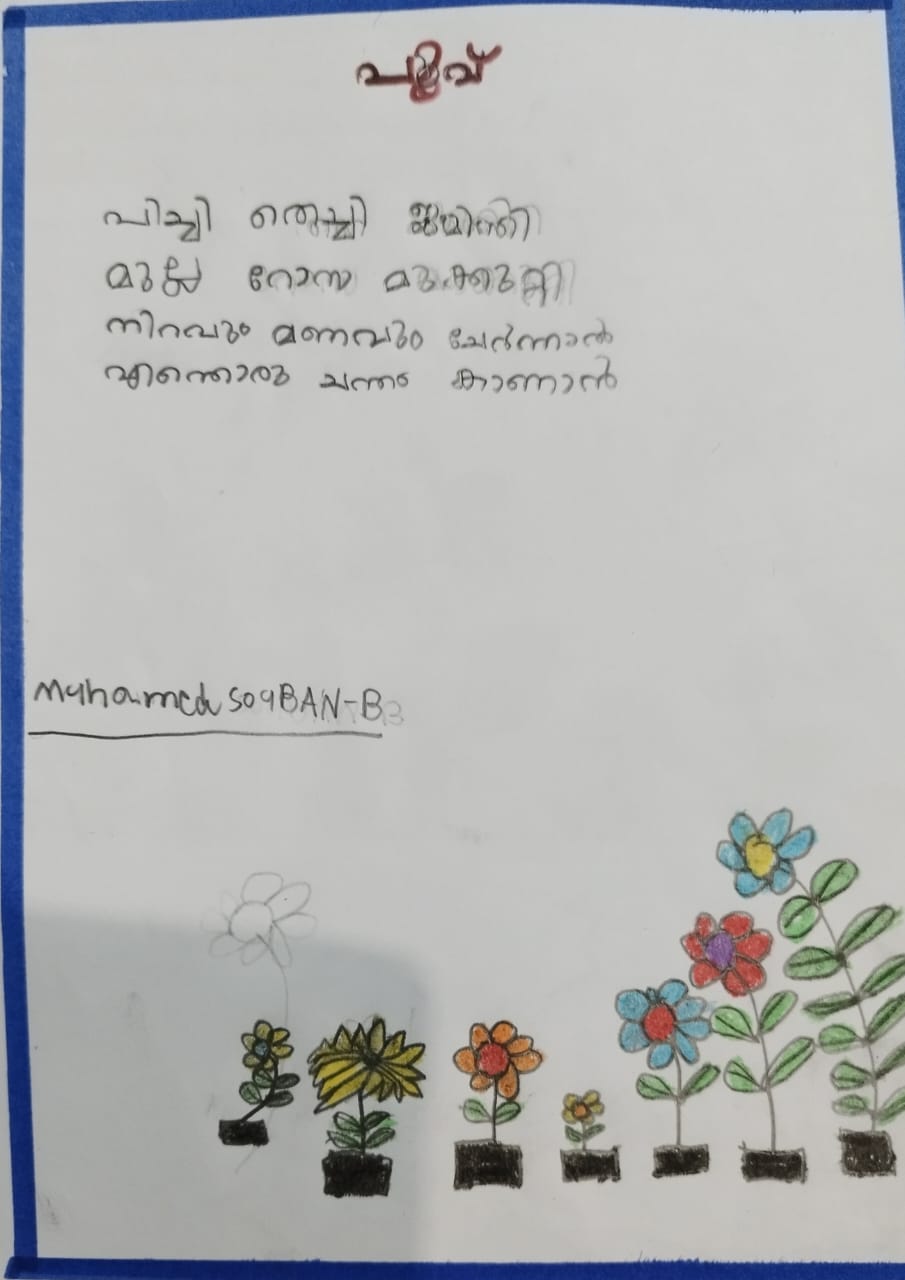 പൂവ്
പിച്ചി തെച്ചി ജമന്തി
മുല്ല റോസ മുക്കുറ്റി
നിറവും മണവും ചേർന്നാൽ
എന്തൊരു ചന്തം കാണാൻ
Muhamed SOqBAN-B